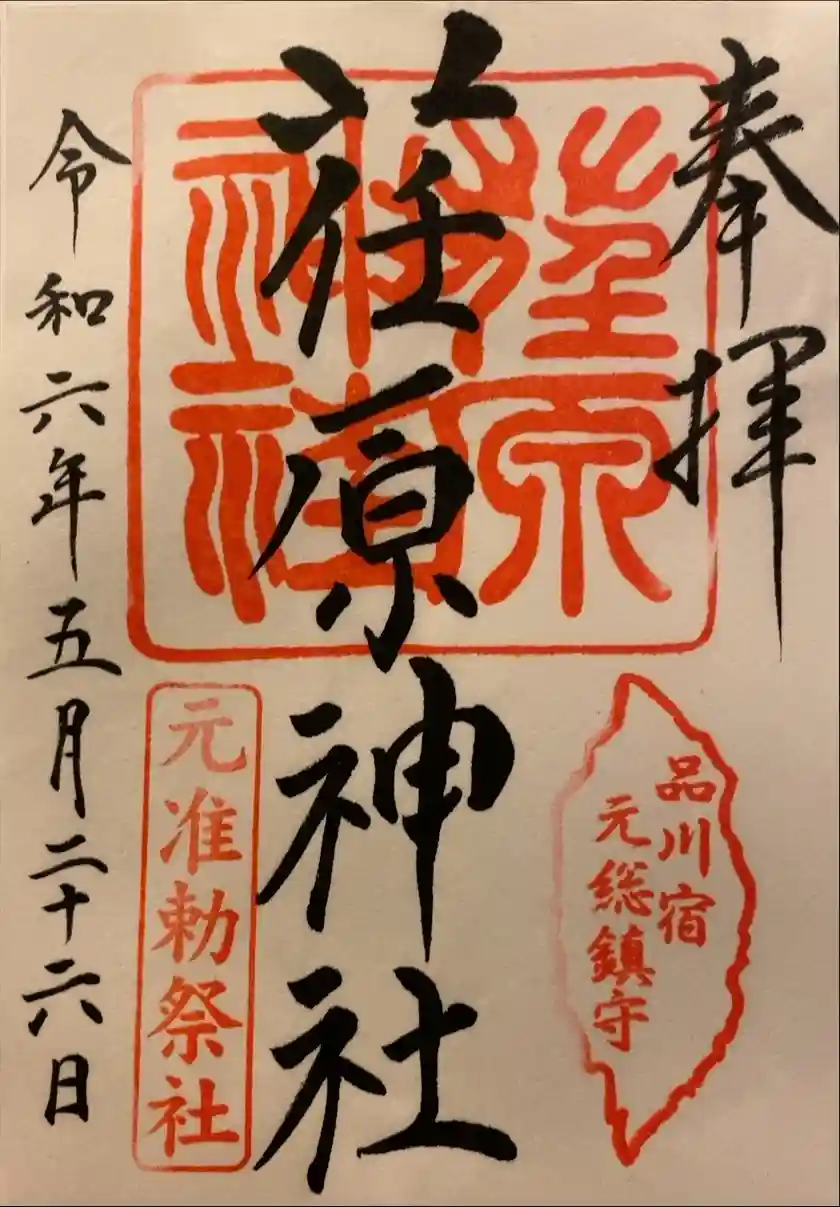 奉拝
荏原神社
品川宿
元総鎮守
元准勅祭社
令和六年五月二十六日